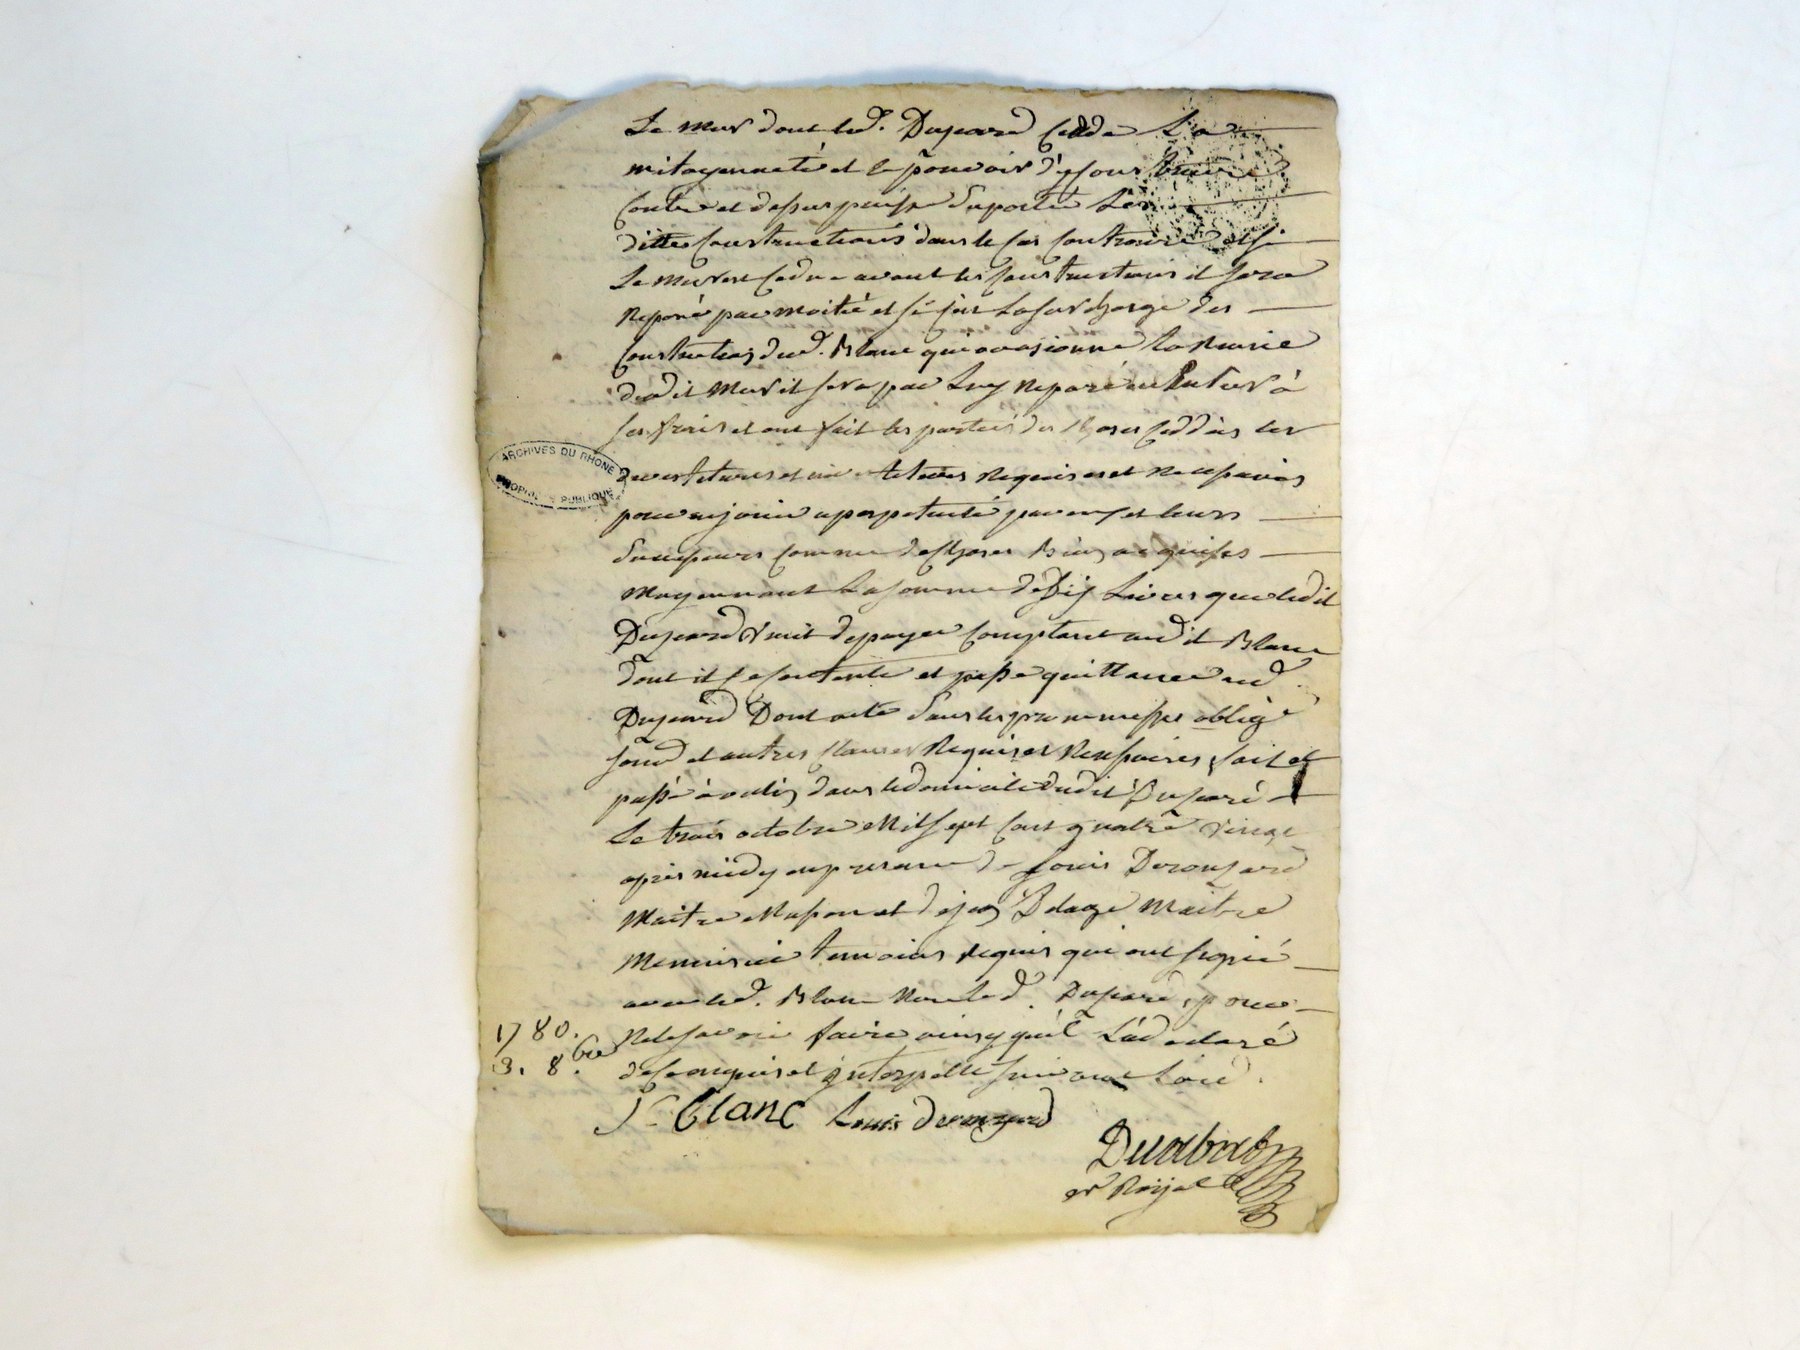 Le mur dont led. Dujard Cedde La
mitoyenneté et le pouvoir d'y Construire
Contre et dessus puisse Suporter Les
dittes Constructions dans le Cas Contraire et si
Le mur est Caduc avant les Constructions il sera
Reparé par moitié et si c'est La surcharge des
Constructions dud. Blanc qui occasionne la Ruine
dudit Mur il sera par Luy Reparé en Entier à
ses frais et ont fait les parties des Choses Ceddées les
devestitures et investitures Requises et Necessaires
pour en jouir a perpetuité par eux et leurs
Successeurs Comme de Choses Bien acquises
Moyennant La somme de Dix Livres que ledit
Dujard Vient de payer Comptant audit Blanc
dont il se Contente et passe quittance aud.
Dujard Dont acte Sous les promesses oblig.
soum. et autres Clauses Requises Necessaires, fait et
passé à oulins dans le domicile dudit Dujard
Le trois octobre Mil sept Cent quatre Vingt
après midy en presence de Louis Deronzard
Maitre Masson et de Jean Delaye Maitre
Menuisier temoins Requis qui ont signé
avec led. Blanc Non led. Dujard, pour
Ne le savoir faire ainsy qu'il L'a déclaré
de Ce enquis et interpellé suivant Lord.
1780.
3. 8bre
Jn Blanc Louis deronzard
nre Royal
ARCHIVES DU RHONE
PROPRIETE PUBLIQUE